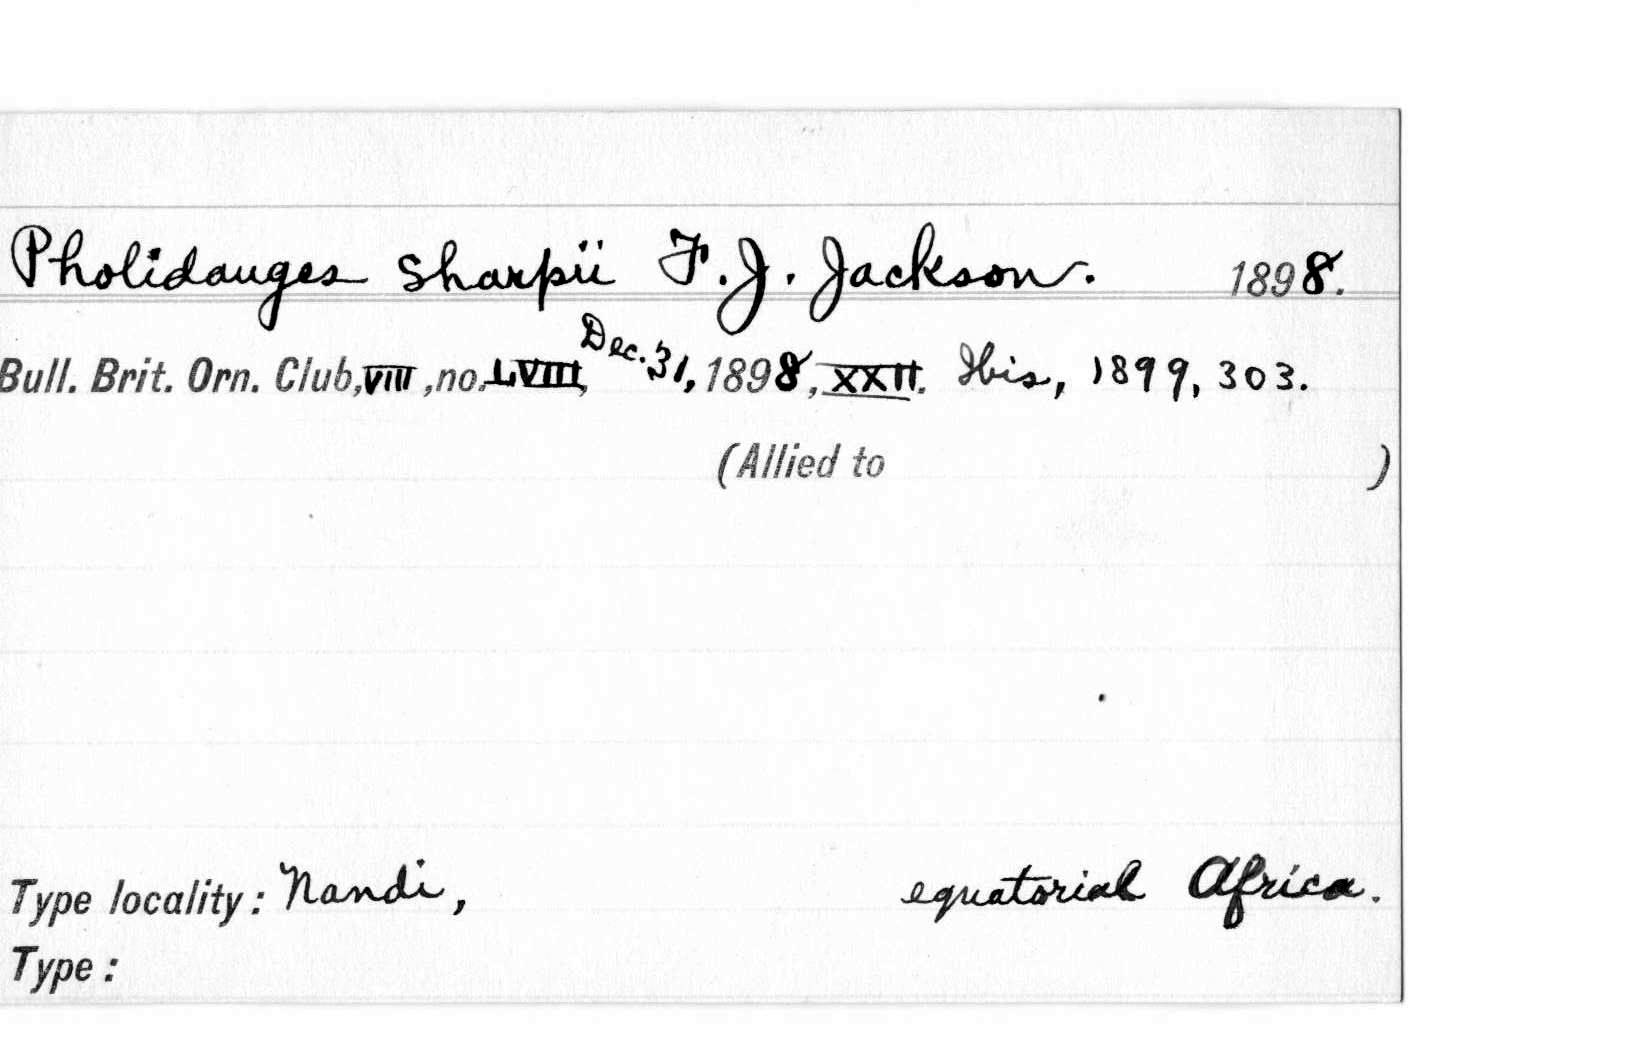 Pholidauges sharpii F. J. Jackson. 1898.
Bull. Brit. Orn. Club, VIII, no. LVIII, Dec. 31, 1898, XXII. Ibis, 1899, 303.
(Allied to )
Type locality: Nandi, equatorial Africa.
Type: